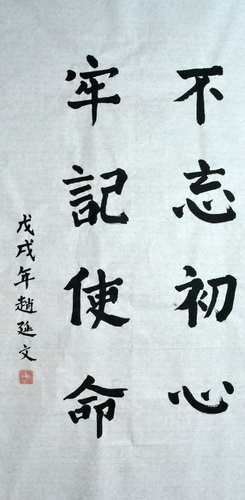 不忘初心
牢記使命
戊戌年趙延文